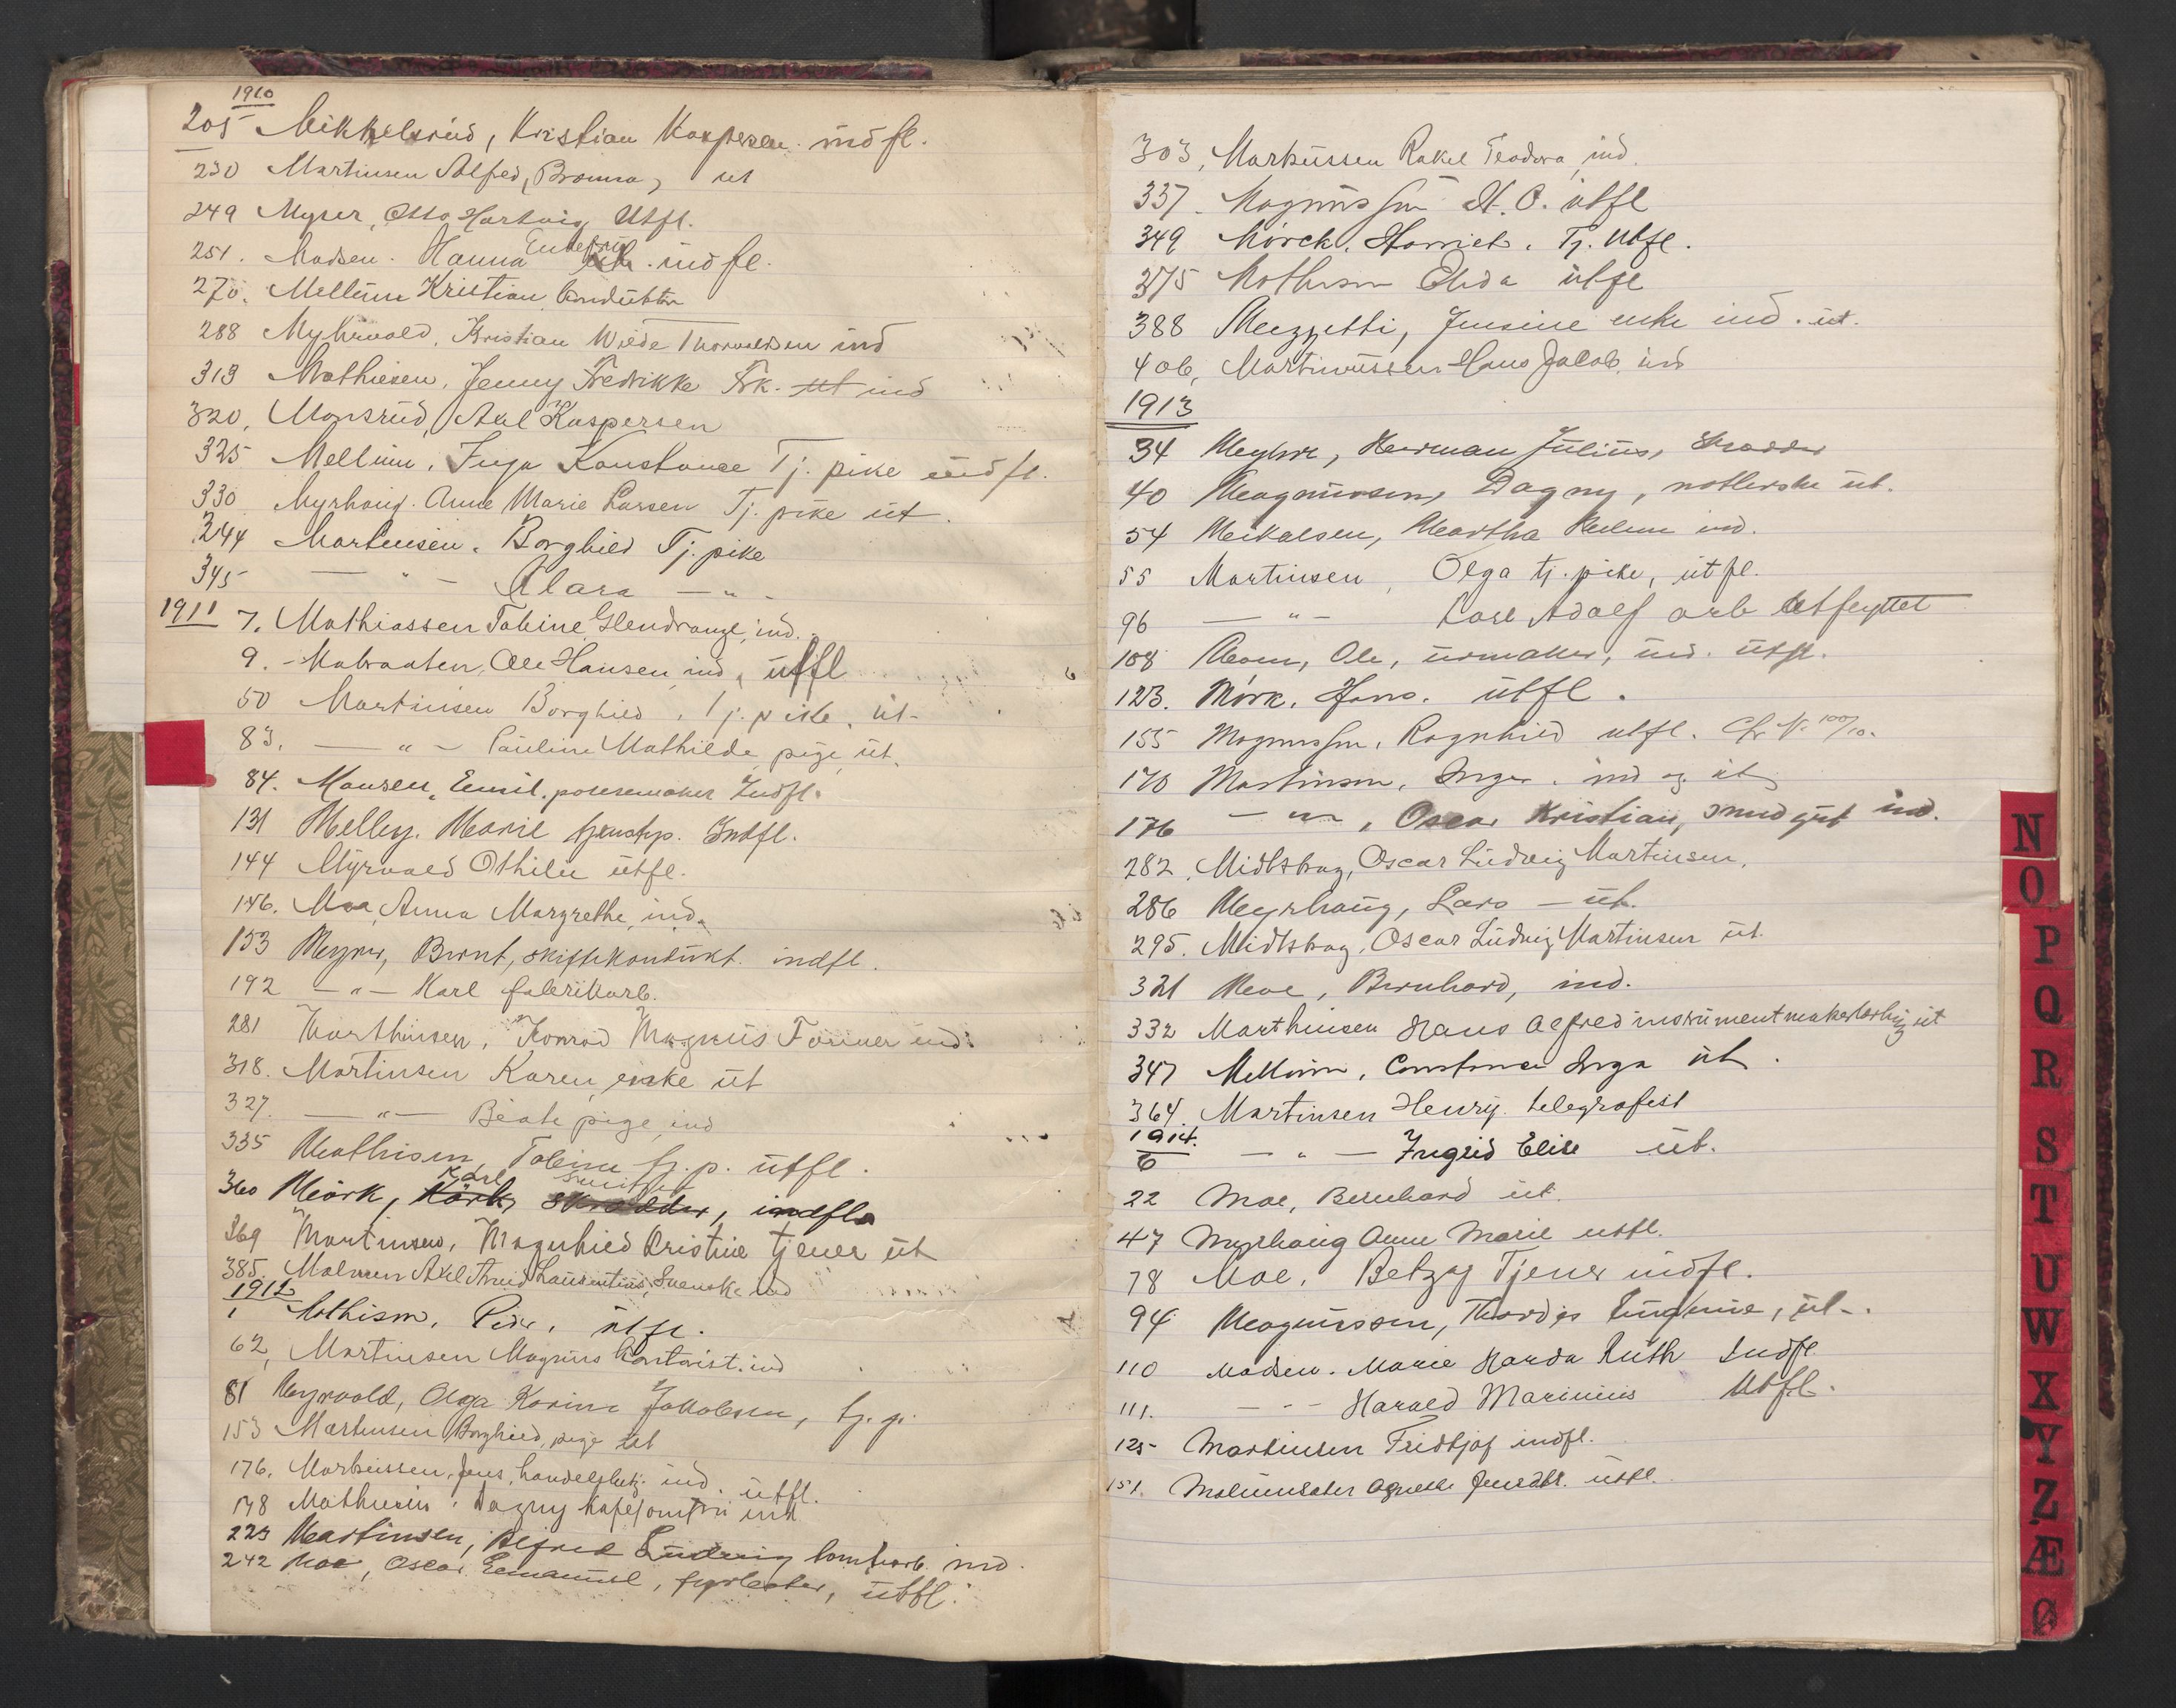 1910
205 Mikkelsrud, Kristian Kaspersen indfl.
230 Martinsen Alfred, ut
249 Myrer, Otto Hartvig Utfl.
251. Madsen. Hanna Enkefru indfl.
270. Mellum Kristian konduktør
288 Myhrvold, Kristian Wilde Thorvaldsen ind
313 Mathiesen, Jenny Fredrikke Frk. ut ind
320, Monsrud, Axel Kaspersen
325 Mellum, Inga Konstance Tj. pike indfl.
330 Myrhaug. Anne Marie Larsen Tj. pike ut.
344 Martinsen. Borghild Tj. pike
345 — " — Klara — " -
1911 7. Mathiassen Tobine Glendrange, ind.
9. Ole Hansen ind, utfl
50 Martinsen Borghild, Tj. pike, ut-
83. — " — Pauline Mathilde, pige ut.
84. Monsen, Emil. pølsemaker Indfl.
131 Melley. Marie tjenestep. Indfl.
144 Myrvold Othilie utfl.
146. Moa, Anna Margrethe, ind.
153 Meyer, Bernt, skiftekondukt. indfl.
192 — " — Karl fabrikarb.
281 Marthinsen, Konrad Magnus Former ind.
318. Martinsen Karen, enke ut
327. — " — Beate pige, ind
335 Mathisen Tobine tj. p. utfl.
360 Mørk, Karl Karl, skrædder, indfl.
369 Martinsen, Magnhild Kristine tjener ut
385, Malmen Axel Arvid Laurentius, Svensk ind
1912
1 Mathisen, Peder, utfl.
62, Martinsen Magnus Kontorist. ind
81 Myrvold, Olga Karine Jakobsen, tj. p.
153 Martinsen Borghild, pige ut
176, Markussen, Jens, handelsbetj. ind. utfl.
178 Mathiesen, Dagny ind
223 Martinsen, Alfred Ludvig ind.
242 Moe, Oscar Emanuel, fyrbøter, utfl.
303, Markussen Rakel Teodora, ind.
337. Magnussen H. O. utfl
349 Mörck, Harriet. Tj. utfl.
375 Mathisen Elida utfl
388 Mezzetti, Jensine enke ind. ut.
406, Martiniussen Hans Jakob, ind
1913
34 Meyhre, Herman Julius, skrædder
40 Magnussen, Dagny, ut.
54 Mikalsen, Martha Helene ind.
55 Martinsen, Olga tj. pike, utfl.
96 — " — Karl Adolf arb Utflyttet
108 Moen, Ole, urmaker, ind. utfl.
123. Mörk, Hans. utfl.
155 Magnussen, Ragnhild utfl. Chr. V. 100/10.
170 Martinsen, Inger. ind og ut
176 — " —, Oscar Kristian, ind.
282, Midtskog, Oscar Ludvig Martinsen,
286 Myrhaug, Lars — ut.
295. Midtskog, Oscar Ludvig Martinsen ut.
321 Moe, Bernhard, ind.
332 Marthinsen Hans Alfred instrumentmakerlærling ut
347 Mellum, Constance Inga ut.
364. Martinsen Henry. telegrafist
1914.
6 — " — Ingrid Elise ut.
22 Moe, Bernhard ut.
47 Myrhaug Anne Marie utfl.
78 Moe, Betzy Tjener indfl.
94 Magnussen, Thordis Eugenie, ut-.
110 Madsen. Marie Harda Ruth Indfl
111. - - - Harald Marinius Utfl.
125 Martinsen Fridtjof indfl.
151. Agnethe Jensdtr. utfl.
N
O
P
Q
R
S
T
U
W
X
Y
Z
Æ
Ø